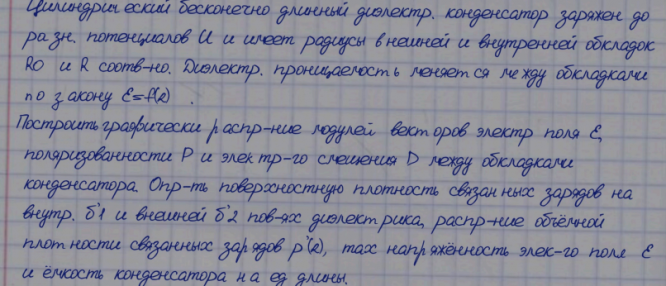 Цилиндрический бесконечно длинный диэлектр. конденсатор заряжен до
разн. потенциалов U и имеет радиусы внешней и внутренней обкладок
R0 и R соотв-но. Диэлектр. проницаемость меняется между обкладками
по закону Ɛ=f(r) .
Построить графически распр-ние модулей векторов электр поля Ɛ,
поляризованности P и электр-го смещения D между обкладками
конденсатора. Опр-ть поверхностную плотность связанных зарядов на
внутр. б'1 и внешней б'2 пов-ях диэлектрика, распр-ние объёмной
плотности связанных зарядов p'(r), max напряжённость элек-го поля Ɛ
и ёмкость конденсатора на ед длины.